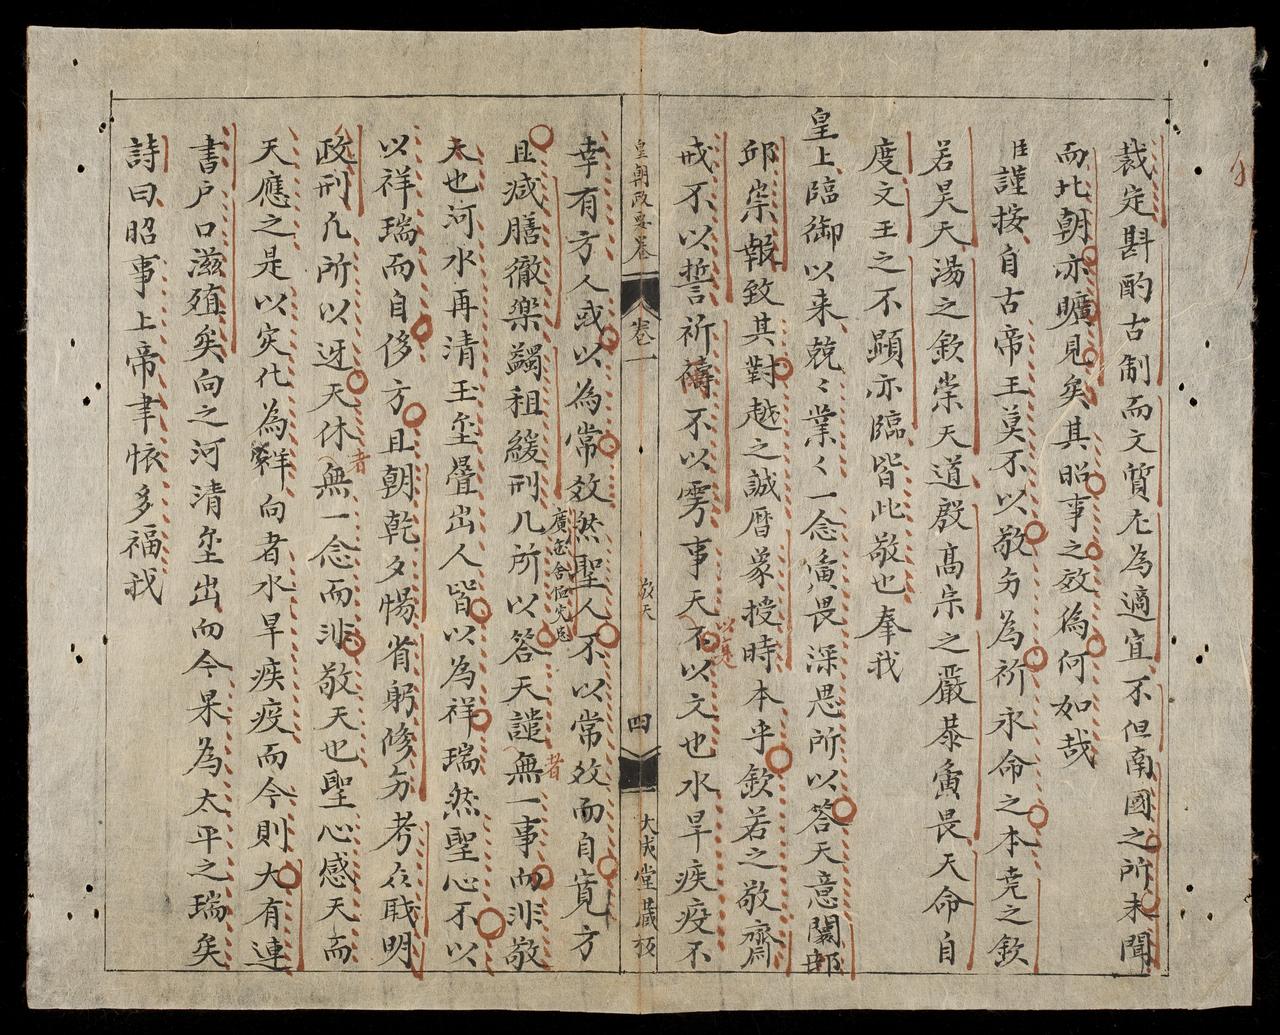 裁定斟酌古制而文質尤為適宜不但南國之所未聞
而北朝亦曠見矣其昭事之效為何如哉
臣謹按自古帝王莫不以敬字為祈永命之本堯之欽
若昊天湯之欽崇天道殷高宗之嚴恭寅畏天命自
度文王之不顯亦臨皆此敬也奉我
皇上臨御以来兢〻業〻一念寅畏深思所以答天意闢郊
邱崇報致其對越之誠曆象授時本乎欽若之敬齋
戒不以誓祈禱不以雩事天不以文也水旱疾疫不
以是
皇朝政要卷
卷一
敬天
四
大成堂藏板
幸有方人或以為常效然聖人不以常效而自寬方
且减膳徹楽蠲租緩刑凡所以答天譴無一事而非敬
者
天也河水再清玉壘疊出人皆以為祥瑞然聖心不以
以祥瑞而自侈方且朝乾夕惕省躬修方考公職明
政刑凡所以迓天休無一念而非敬天也聖心感天而
者
天應之是以灾化為祥向者水旱疾疫而今則大有連
書户口滋殖矣向之河清壘出而今果為太平之瑞矣
詩曰昭事上帝聿懷多福我